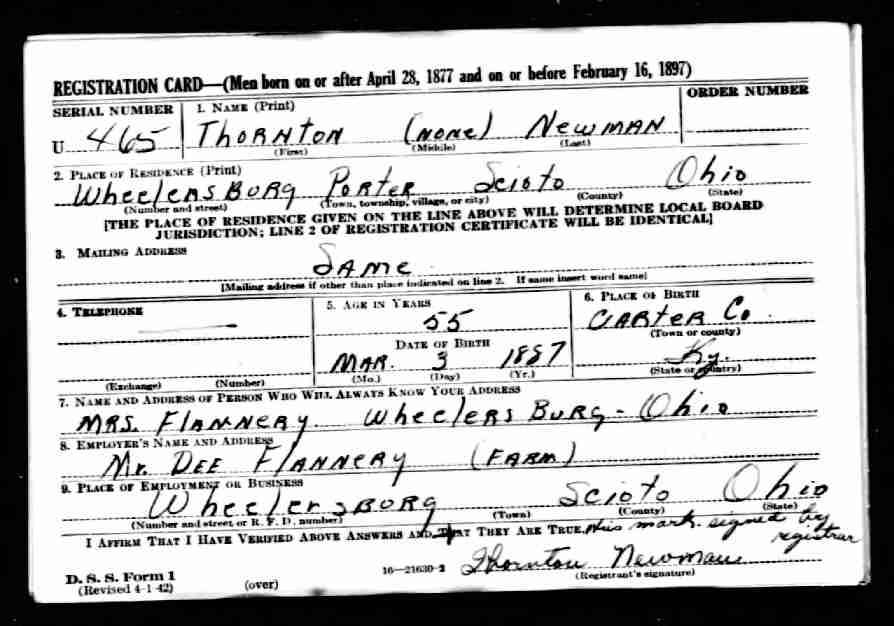 REGISTRATION CARD—(Men born on or after April 28, 1877 and on or before February 16, 1897)
SERIAL NUMBER 1. NAME (Print) ORDER NUMBER
U 465 THORNTON (NONE) NEWMAN
(First) (Middle) (Last)
2. PLACE OF RESIDENCE (Print)
WheelersBURG PORTER Scioto Ohio
(Number and street) (Town, township, village, or city) (County) (State)
[THE PLACE OF RESIDENCE GIVEN ON THE LINE ABOVE WILL DETERMINE LOCAL BOARD
JURISDICTION; LINE 2 OF REGISTRATION CERTIFICATE WILL BE IDENTICAL]
3. MAILING ADDRESS
SAME
[Mailing address if other than place indicated on line 2. If same insert word same]
4. TELEPHONE 5. AGE IN YEARS 6. PLACE OF BIRTH
55 CARTER Co.
DATE OF BIRTH (Town or county)
MAR. 3 1887 Ky.
(Exchange) (Number) (Mo.) (Day) (Yr.) (State or country)
7. NAME AND ADDRESS OF PERSON WHO WILL ALWAYS KNOW YOUR ADDRESS
MRS. FlANNERY WheelersBURG - Ohio
8. EMPLOYER'S NAME AND ADDRESS
Mr. DEE FlANNERY (FARM)
9. PLACE OF EMPLOYMENT OR BUSINESS
WheelersBURG Scioto Ohio
(Number and street or R. F. D. number) (Town) (County) (State)
I AFFIRM THAT I HAVE VERIFIED ABOVE ANSWERS AND THAT THEY ARE TRUE. His mark. signed by
registrar
Thornton Newman
D. S. S. Form 1
(Revised 4-1-42) (over) 16—21630-2 (Registrant's signature)